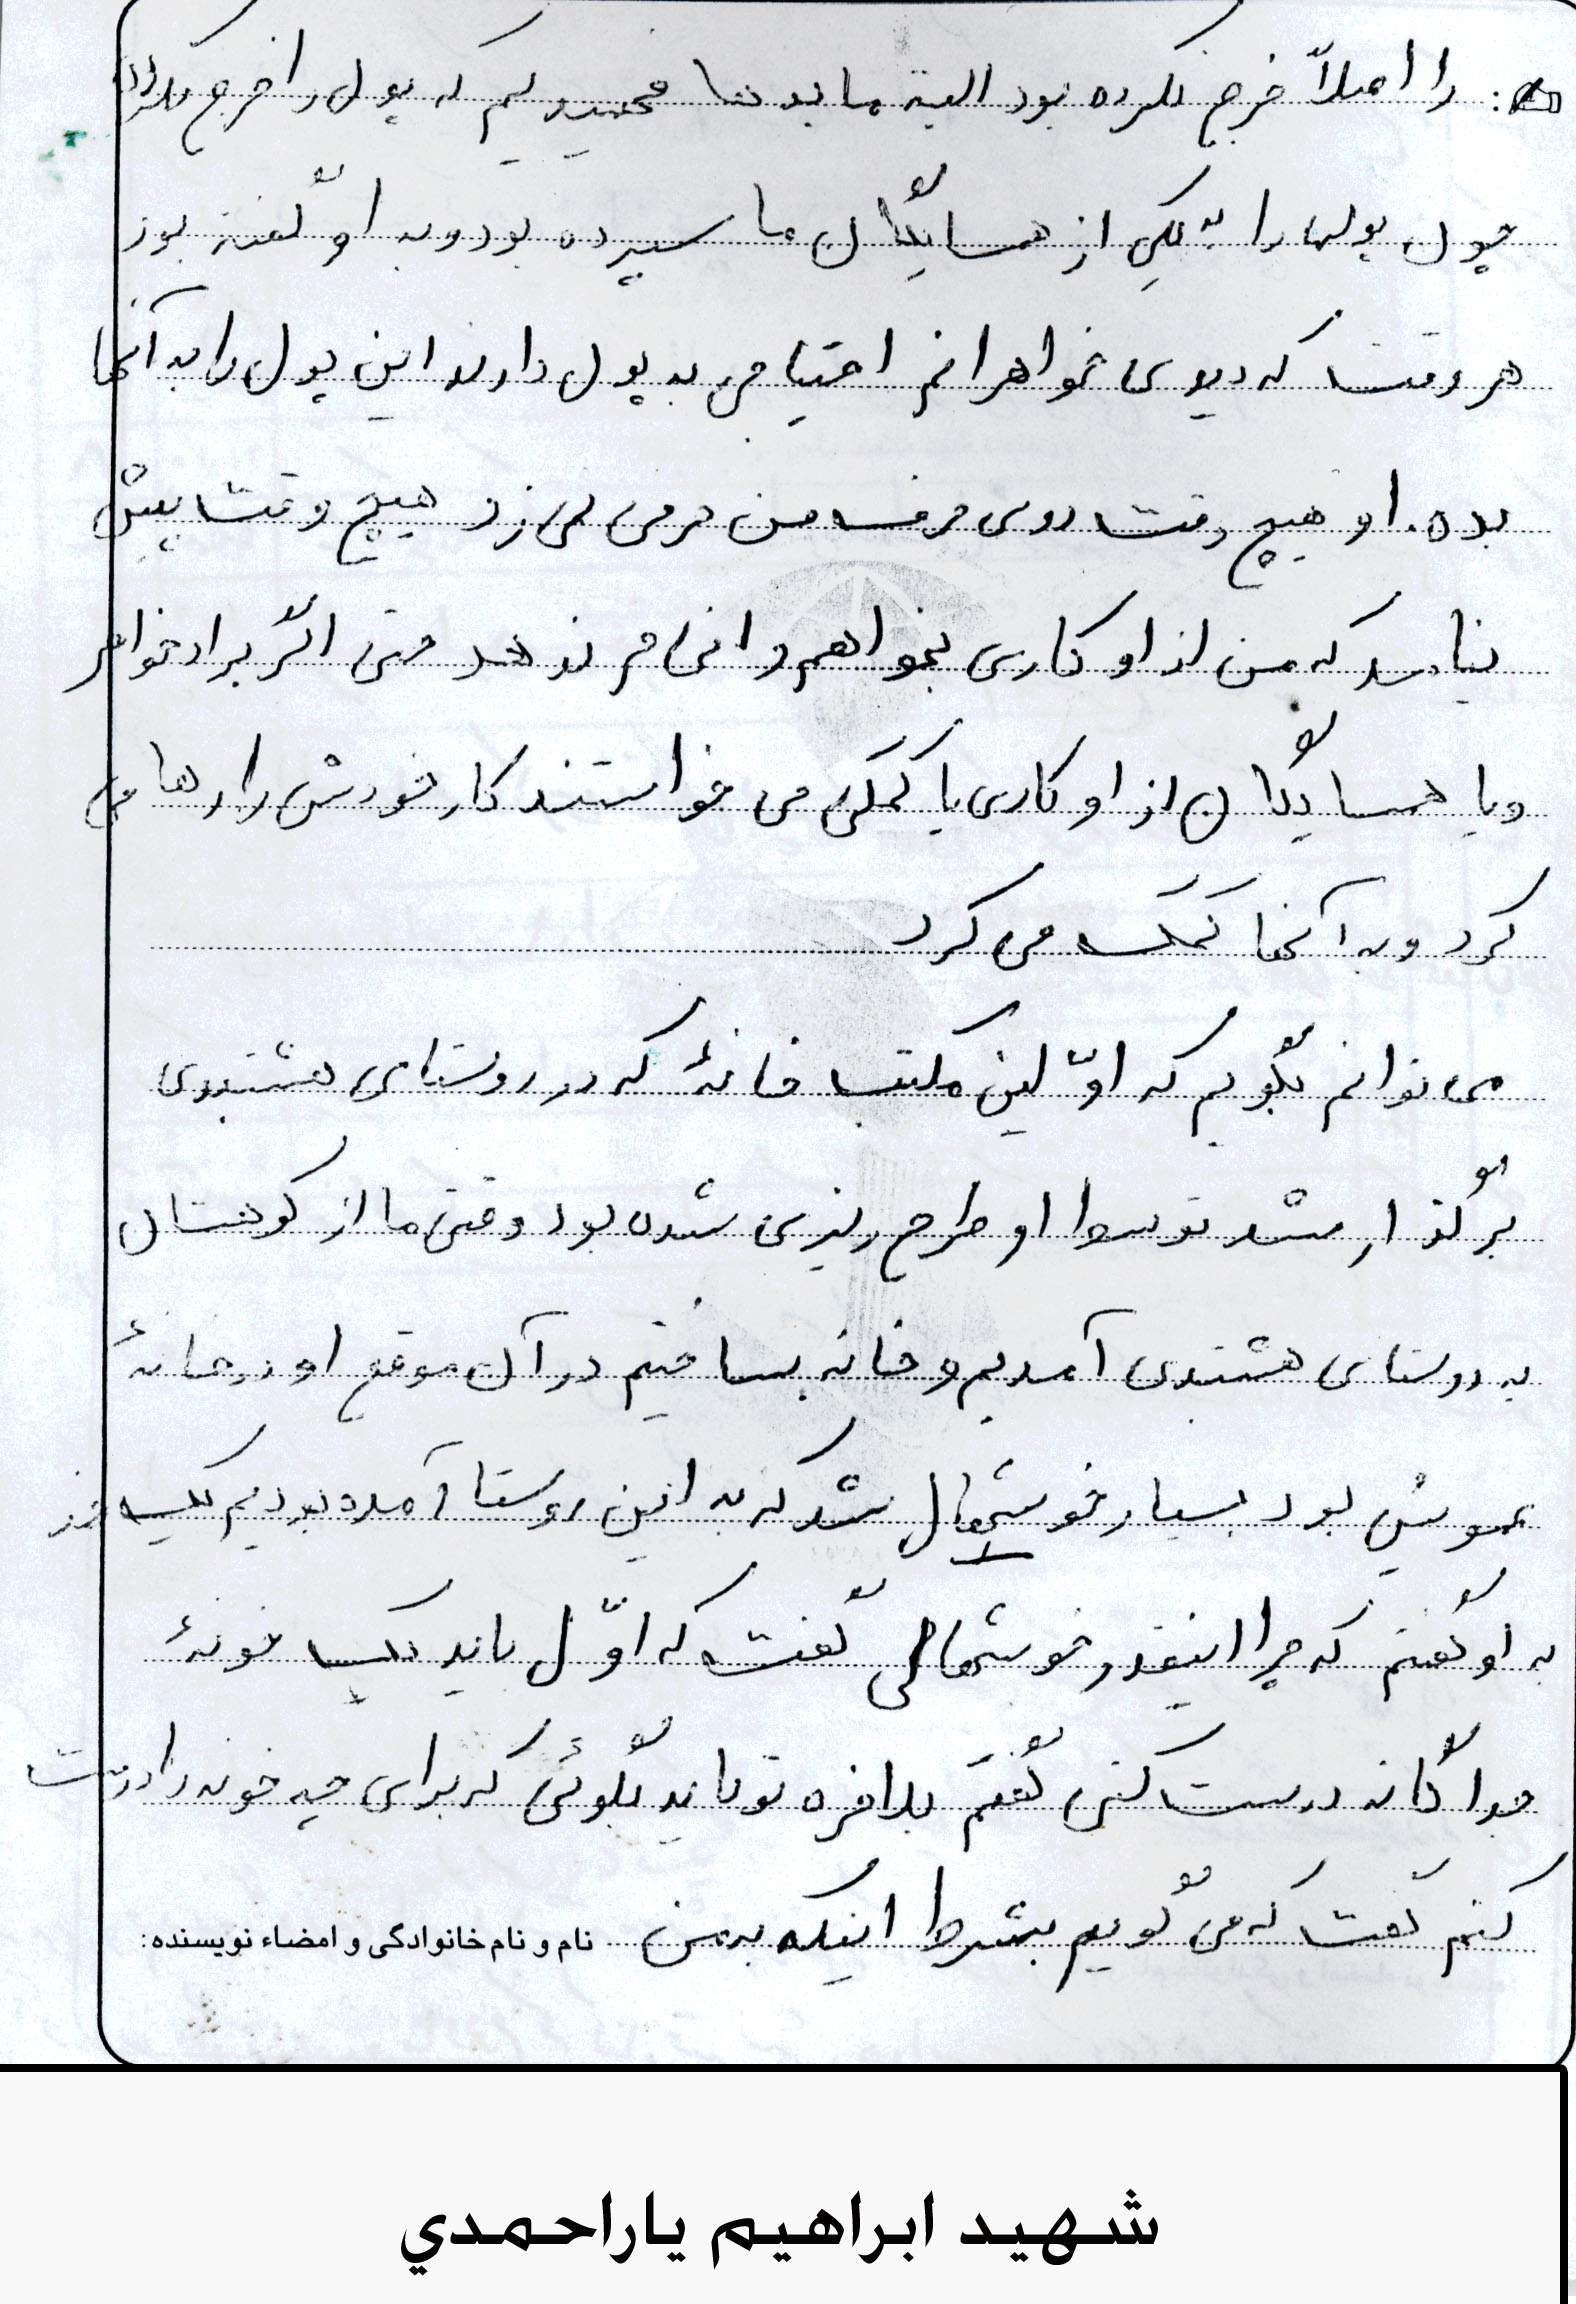 را اصلاً خرج نکرده بود البته ما بعدها فهمیدیم که پول را خرج نکرده
چون پولها را به یکی از همسایگان ما سپرده بود و به او گفته بود
هر وقت که دیدی خواهرانم احتیاجی به پول دارند این پول را به آنها
بده. او هیچ وقت روی حرف من حرفی نمی زد هیچ وقت پیش
نیامد که من از او کاری بخواهم و انجام ندهد حتی اگر برادر خواهر
ویا همسایگان از او کاری یا کمکی می خواستند کار خودش را رها می
کرد و به آنها کمک می کرد
می توانم بگویم که اوّلین مکتب خانهٔ که در روستای هشتبندی
برگذار شد توسط او طرح ریزی شده بود وقتی ما از کوهستان
به روستای هشتبندی آمدیم و خانه بساختیم در آن موقع او در خانهٔ
عمویش بود بسیار خوشحال شد که به این روستا آمده بودیم یک روز
به او گفتم که چرا اینقدر خوشحالی گفت که اوّل باید یک خونهٔ
جداگانه درست کنی گفتم بلاخره تو باید بگوئی که برای چه خونه را درست
کنم گفت که می گویم بشرط اینکه به من
نام و نام خانوادگی و امضاء نویسنده:
شهيد ابراهيم ياراحمدي